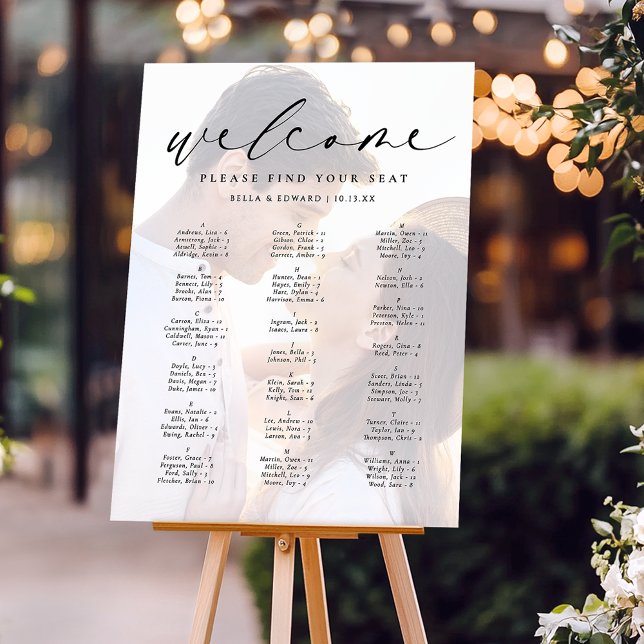 welcome
PLEASE FIND YOUR SEAT
BELLA & EDWARD | 10.13.XX
A
Andrews, Lisa - 6
Armstrong, Jack - 3
Atwell, Sophie - 2
Aldridge, Kevin - 8
B
Barnes, Tom - 4
Bennett, Lily - 5
Brooks, Alan - 7
Burton, Fiona - 10
C
Carson, Eliza - 12
Cunningham, Ryan - 1
Caldwell, Mason - 11
Carter, June - 9
D
Doyle, Lucy - 3
Daniels, Ben - 5
Davis, Megan - 7
Duke, James - 10
E
Evans, Natalie - 2
Ellis, Ian - 6
Edwards, Oliver - 4
Ewing, Rachel - 9
F
Foster, Grace - 7
Ferguson, Paul - 8
Ford, Sally - 3
Fletcher, Brian - 10
G
Green, Patrick - 11
Gibson, Chloe - 2
Gordon, Frank - 5
Garrett, Amber - 9
H
Hunter, Dean - 1
Hayes, Emily - 7
Hart, Dylan - 4
Harrison, Emma - 6
I
Ingram, Jack - 2
Isaacs, Laura - 8
J
Jones, Bella - 3
Johnson, Phil - 5
K
Klein, Sarah - 9
Kelly, Tom - 12
Knight, Sean - 6
L
Lee, Andrew - 10
Lewis, Nora - 7
Larson, Ava - 3
M
Martin, Owen - 11
Miller, Zoe - 5
Mitchell, Leo - 9
Moore, Ivy - 4
M
Martin, Owen - 11
Miller, Zoe - 5
Mitchell, Leo - 9
Moore, Ivy - 4
N
Nelson, Josh - 2
Newton, Ella - 8
P
Parker, Nina - 10
Peterson, Kyle - 1
Preston, Helen - 3
R
Rogers, Gina - 8
Reed, Peter - 4
S
Scott, Brian - 12
Sanders, Linda - 5
Simpson, Joe - 6
Stewart, Molly - 7
T
Turner, Claire - 11
Taylor, Ian - 9
Thompson, Chris - 2
W
Williams, Anna - 1
Wright, Lily - 6
Watson, Jack - 12
Wood, Sara - 8